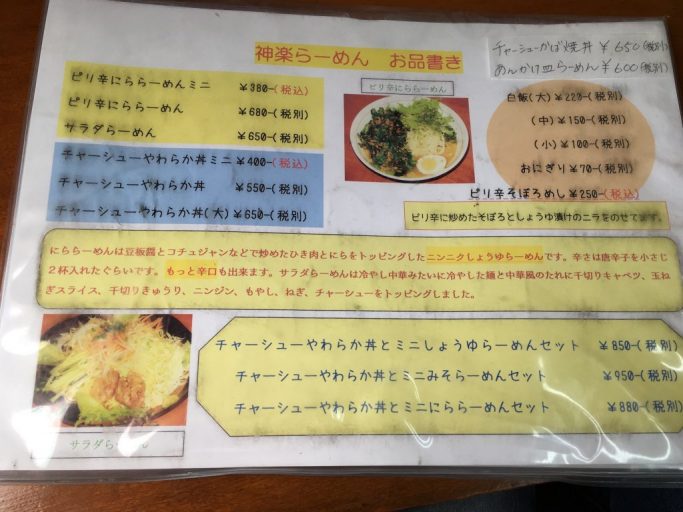 神楽らーめん　お品書き
チャーシューかば焼丼 ¥650(税別)
あんかけ皿らーめん ¥600(税別)
ピリ辛にららーめんミニ ¥380-(税込)
ピリ辛にららーめん ¥680-(税別)
サラダらーめん ¥650-(税別)
チャーシューやわらか丼ミニ ¥400-(税込)
チャーシューやわらか丼 ¥550-(税別)
チャーシューやわらか丼(大) ¥650-(税別)
ピリ辛にららーめん
白飯(大) ¥220-(税別)
(中) ¥150-(税別)
(小) ¥100-(税別)
おにぎり ¥70-(税別)
ピリ辛そぼろめし ¥250-(税込)
ピリ辛に炒めたそぼろとしょうゆ漬けのニラをのせてます。
にららーめんは豆板醤とコチュジャンなどで炒めたひき肉とにらをトッピングしたニンニクしょうゆらーめんです。辛さは唐辛子を小さじ
２杯入れたぐらいです。もっと辛口も出来ます。サラダらーめんは冷やし中華みたいに冷やした麺と中華風のたれに千切りキャベツ、玉ね
ぎスライス、千切りきゅうり、ニンジン、もやし、ねぎ、チャーシューをトッピングしました。
チャーシューやわらか丼とミニしょうゆらーめんセット ¥850-(税別)
チャーシューやわらか丼とミニみそらーめんセット ¥950-(税別)
チャーシューやわらか丼とミニにららーめんセット ¥880-(税別)
サラダらーめん